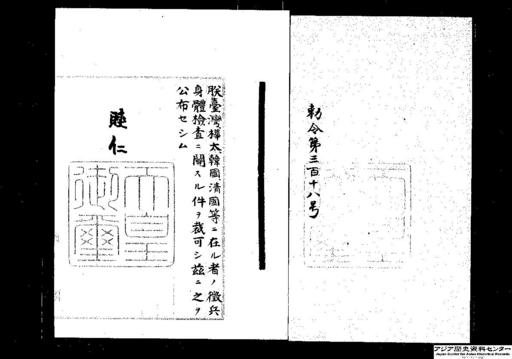 勅令第三百十八号
朕臺灣樺太韓國清國等ニ在ル者ノ徴兵
身體檢査ニ關スル件ヲ裁可シ茲ニ之ヲ
公布セシム
睦仁
天皇
御璽
アジア歴史資料センター
Japan Center for Asian Historical Records